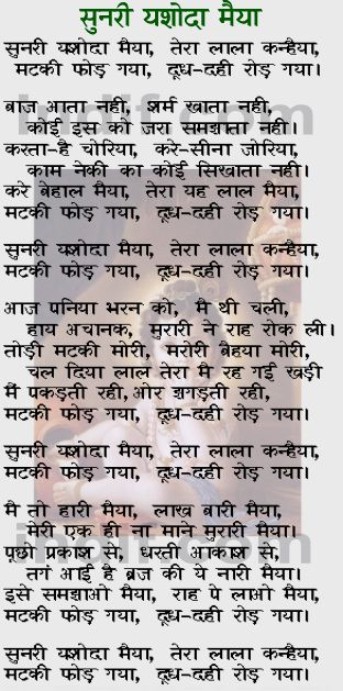 सुनरी यशोदा मैया
सुनरी यशोदा मैया, तेरा लाला कन्हैया,
मटकी फोड़ गया, दूध-दही रोड़ गया।
बाज आता नही, शर्म खाता नही,
कोई इस को जरा समझाता नही।
करता-है चोरिया, करे-सीना जोरिया,
काम नेकी का कोई सिखाता नही।
करे बेहाल मैया, तेरा यह लाल मैया,
मटकी फोड़ गया, दूध-दही रोड़ गया।
सुनरी यशोदा मैया, तेरा लाला कन्हैया,
मटकी फोड़ गया, दूध-दही रोड़ गया।
आज पनिया भरन को, मै थी चली,
हाय अचानक, मुरारी ने राह रोक ली।
तोड़ी मटकी मोरी, मरोरी बैहया मोरी,
चल दिया लाल तेरा मै रह गई खड़ी
मैं पकड़ती रही, ओर झगड़ती रही,
मटकी फोड़ गया, दूध-दही रोड़ गया।
सुनरी यशोदा मैया, तेरा लाला कन्हैया,
मटकी फोड़ गया, दूध-दही रोड़ गया।
मै तो हारी मैया, लाख बारी मैया,
मेरी एक ही ना माने मुरारी मैया।
पूछी प्रकाश से, धरती आकाश से,
तगं आई है ब्रज की ये नारी मैया।
इसे समझाओ मैया, राह पे लाओ मैया,
मटकी फोड़ गया, दूध-दही रोड़ गया।
सुनरी यशोदा मैया, तेरा लाला कन्हैया,
मटकी फोड़ गया, दूध-दही रोड़ गया।
indif.com
indif.com